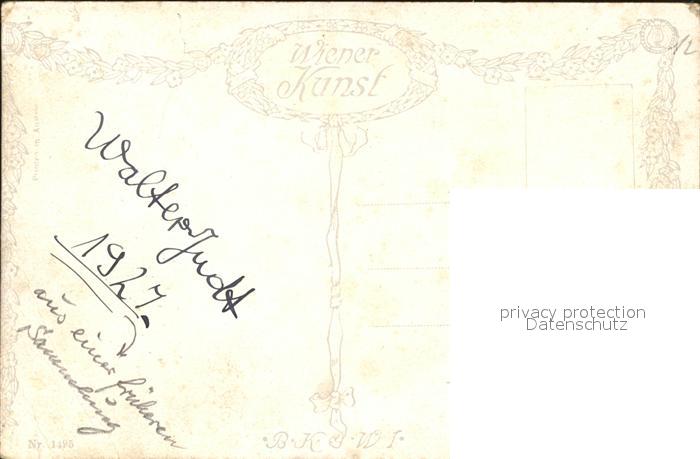 Wiener
Kunst
12
Printed in Austria
Walter Judt
1927.
aus einer früheren
Sammlung
privacy protection
Datenschutz
Nr. 1495
B.K.W.I.